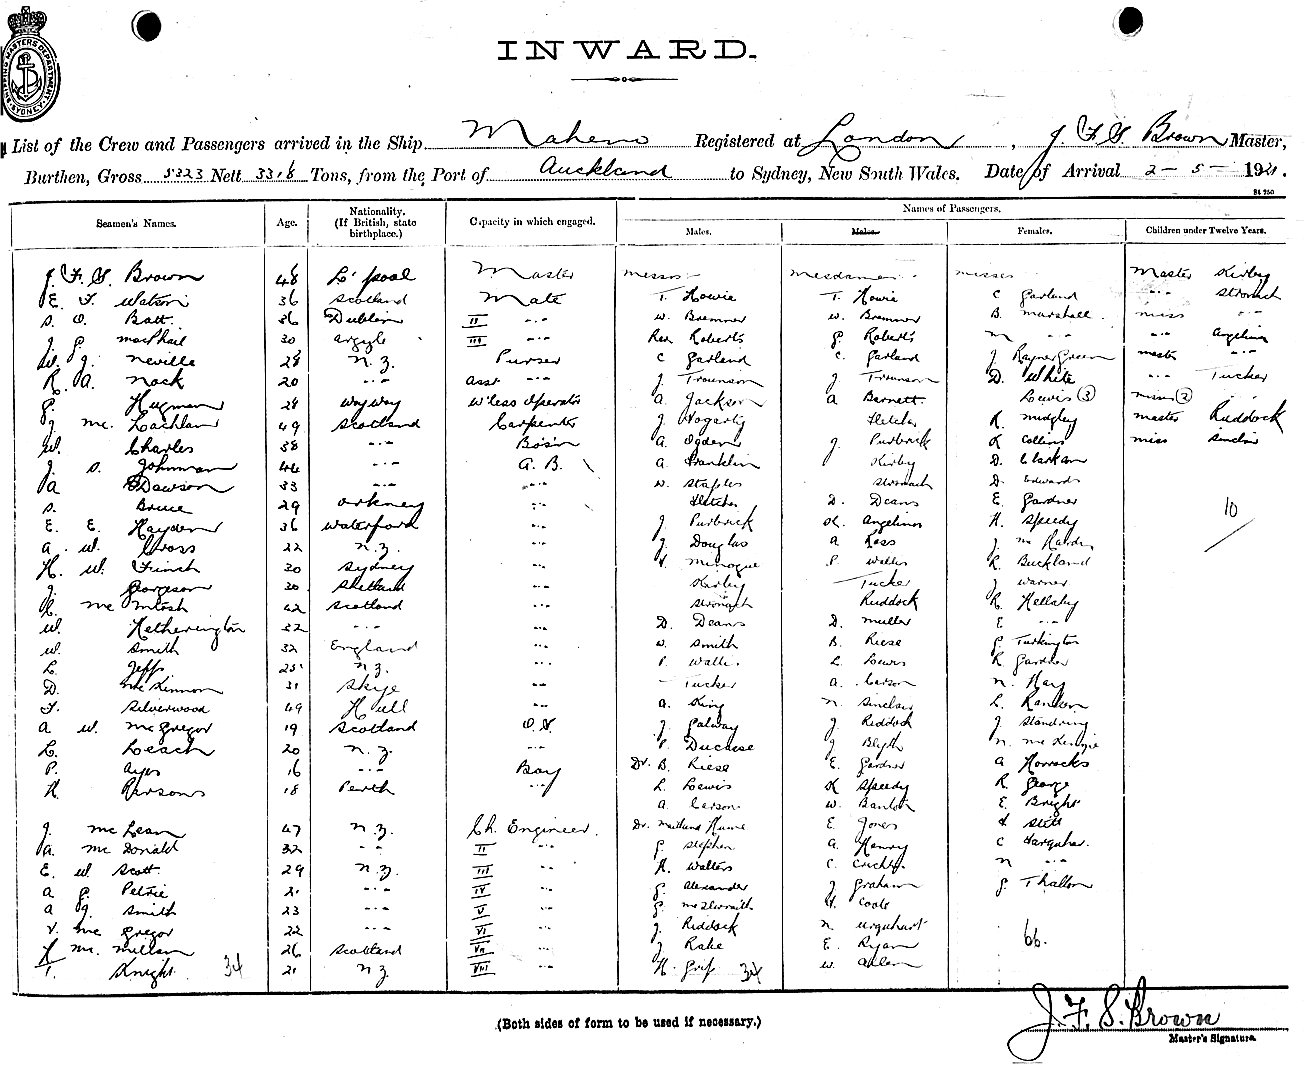 SHIPPING MASTERS DEPARTMENT SYDNEY
INWARD.
List of the Crew and Passengers arrived in the Ship Maheno Registered at London, J F S Brown Master,
Burthen, Gross 5323 Nett 3318 Tons, from the Port of Auckland to Sydney, New South Wales. Date of Arrival 2 – 5 – 1921.
Names of Passengers.
Seamen's Names. Age. Nationality. (If British, state birthplace.) Capacity in which engaged. Males. Males. Females. Children under Twelve Years.
J. F. S. Brown 48 L'pool Master Messrs Mesdames Misses Master Kirby
E. T. Watson 36 Scotland Mate T. Howie T. Howie C Garland " Stronach
S. O. Batt 36 Dublin II " W. Bremner W. Bremner B. Marshall Miss "
J. G. MacPhail 30 Argyle III " Rev Roberts G. Roberts M " "
W. J. Neville 28 N.Z. Purser C Garland C. Garland J Master "
R. A. Nock 20 " Asst " J. Trounson J Trounson D. White " Tucker
G. Hugman 28 W'less Operator A. Jackson A Barnett Lewis (3) Miss (2)
J. Mc. Lachlan 49 Scotland Carpenter J Hogarty Fletcher R. Midgley Master Ruddock
W. Charles 38 " Bosin A. Ogden J Purbrick K Collins Miss Sinclair
J. S. Johnman 44 " A. B. A. Franklin Kirby D. Clarkam
A Dawson 33 " " W. Staples Stronach D. Edwards
S. Bruce 29 Orkney " Fletcher D. Deans E. Gardner 10
E. E. Hayden 36 Waterford " J Purbrick Angelinos H. Speedy
A. W. Cross 22 N.Z. " J. Douglas A Ross J
H. W. French 30 Sydney " Minogue P Wallis R. Buckland
J. Georgeson 30 Shetland " Kirby Tucker J Warner
R. McIntosh 42 Scotland " Stronach Ruddock R. Hellaby
W. Hetherington 32 " " D. Deans D. Muller E "
W. Smith 32 England " W. Smith B. Riese G. Turkington
L. Jepp 25 N.Z. " P Wallis L Lewis R Gardner
D. McKinnon 31 Skye " Tucker A. Carson N. Hay
F. Silverwood 49 Hull " A. King N. Sinclair L. Rankin
A W. McGregor 19 Scotland O.S. J. Galway J Riddock J Standring
L. Leach 20 N.Z. " P. J Blyth N. McKenzie
P. Ayes 16 " Boy Dr. B. Riese E. Gardner A Horrocks
R. Parsons 18 Perth " L. Lewis K Speedy R. George
A. Carson W. Banton E Bright
J. McLean 47 N.Z. Ch. Engineer. Dr. Maitland Hume E. Jones Still
A. McDonald 32 " II " G. Stephen A. Henry C Farquhar
E. W. Scott 29 N.Z. III " R. Walters C. N "
A G. Petrie 21 " IV " G. Alexander J Graham G Thallon
A J. Smith 23 " V " G. McIlwraith Coote
V. McGregor 22 " VI " J. Riddock N. Urquhart
H Mc. Millan 26 Scotland VII " J Rake E. Ryan 66.
T. Knight 34 21 N.Z. VIII " H. 34 W. Allan
(Both sides of form to be used if necessary.)
J. F. S. Brown
Master's Signature.